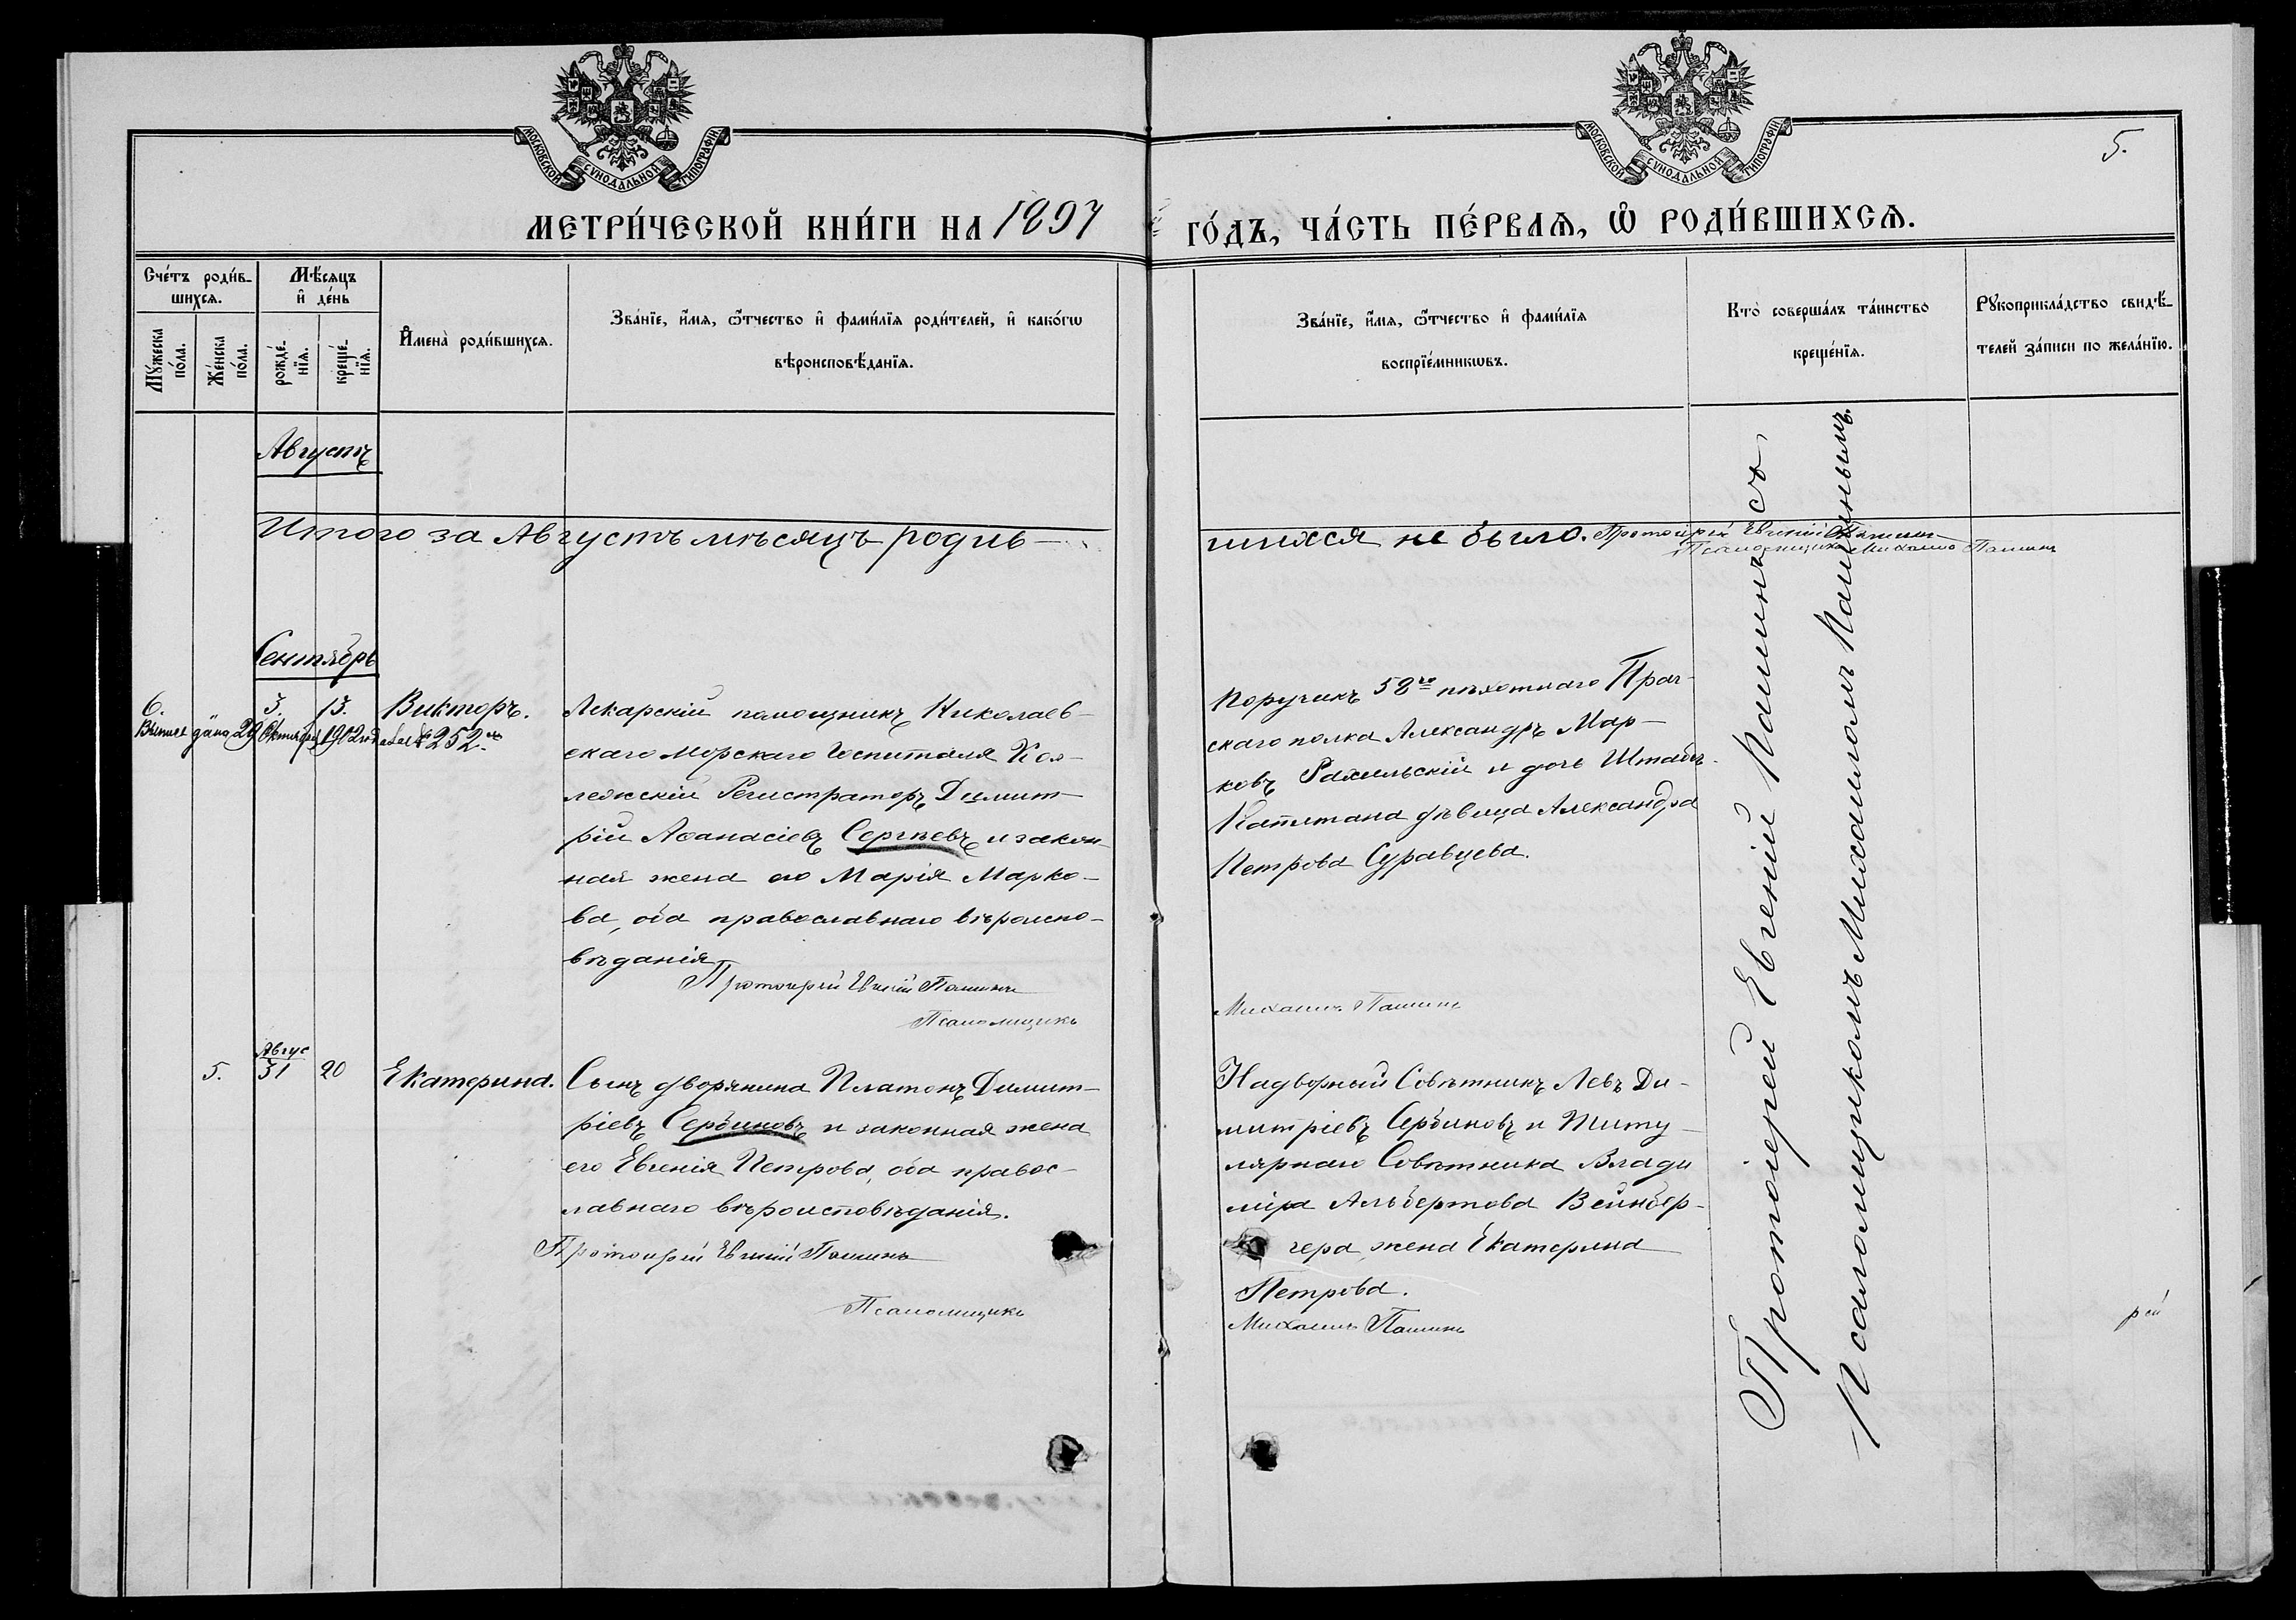 МОСКОВСКОЙ СѴНОДАЛЬНОЙ ТИПОГРАФІИ
МОСКОВСКОЙ СѴНОДАЛЬНОЙ ТИПОГРАФІИ
5.
МЕТРИ́ЧЕСКОЙ КНИ́ГИ НА 1897
ГО́ДЪ, ЧА́СТЬ ПЕ́РВАѦ, Ѡ҆ РОДИ́ВШИХСѦ.
Сче́тъ роди́в-
шихсѧ.
Мꙋ́жеска
по́ла.
Же́нска
по́ла.
Мѣ́сѧцъ
и҆ де́нь
рожде́-
нїѧ.
креще́-
нїѧ.
И҆мена̀ роди́вшихсѧ.
Зва́нїе, и҆́мѧ, ѻ҆́тчество и҆ фами́лїѧ роди́телей, и҆ како́гѡ
вѣроисповѣ́данїѧ.
Зва́нїе, и҆́мѧ, ѻ҆́тчество и҆ фами́лїѧ
воспрїе́мникѡвъ.
Кто̀ соверша́лъ та́инство
креще́нїѧ.
Рꙋкоприкла́дство свидѣ́-
телей за́писи по жела́нїю.
Августъ
Итого за Августъ мѣсяцъ родив-
шихся не было. Протоіерей Евгеній Пашинъ
Псаломщикъ Михаилъ Пашинъ
Сентябрь
6.
3.
13.
Викторъ.
дана 29 Октября 1902 года за № 252.
Лекарскій помощникъ Николаев-
скаго Морскаго Госпиталя Кол-
лежскій Регистраторъ Димит-
рій Аѳанасіевъ Сергѣевъ и закон-
ная жена его Марія Марко-
ва, оба православнаго вѣроиспо-
вѣданія
Протоіерей Евгеній Пашинъ
Псаломщикъ
Поручикъ 58го пѣхотнаго Праг-
скаго полка Александръ Мар-
ковъ и дочь Штабъ-
Капитана дѣвица Александра
Петрова Суравцева.
Михаилъ Пашинъ
5.
Авгус
31
20
Екатерина.
Сынъ дворянина Платонъ Димит-
ріевъ Сербиновъ и законная жена
его Евгенія Петрова, оба правос-
лавнаго вѣроисповѣданія.
Протоіерей Евгеній Пашинъ
Псаломщикъ
Надворный Совѣтникъ Левъ Ди-
митріевъ Сербиновъ и Титу-
лярнаго Совѣтника Влади
міра Альбертова Вейнбер-
гера жена Екатерина
Петрова.
Михаилъ Пашинъ
Протоіерей Евгеній Пашинъ съ
Псаломщикомъ Михаиломъ Пашинымъ.
рей